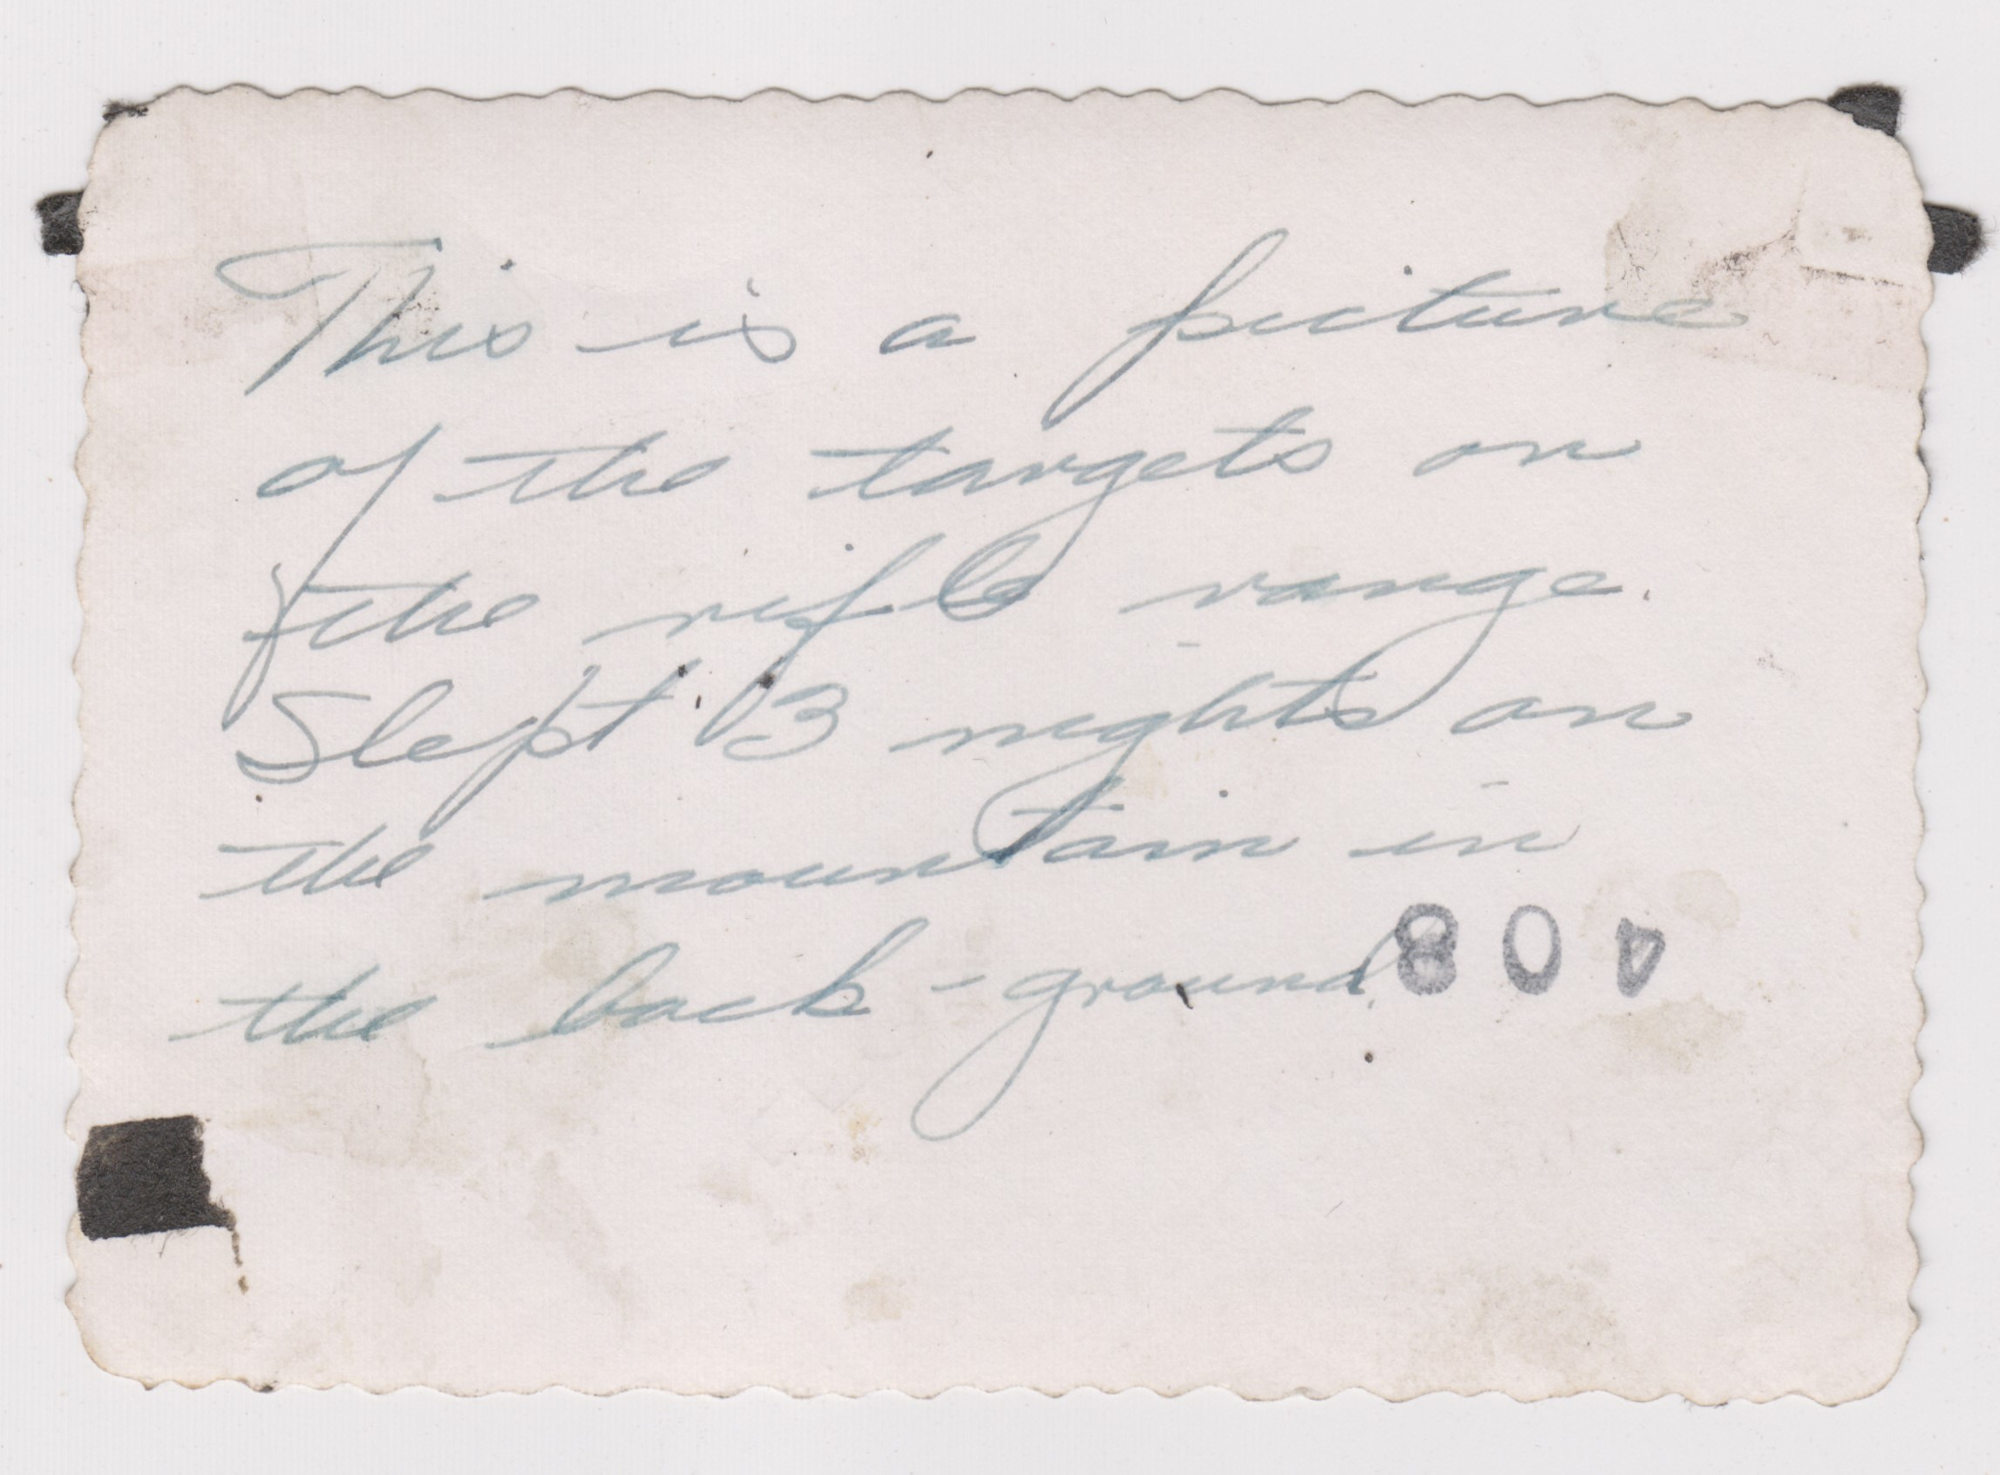 This is a picture
of the targets on
the rifle range.
Slept 3 nights on
the mountain in
the back-ground.
408